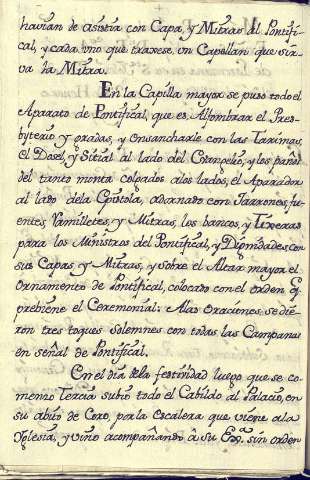 havian de asistir con Capa, y Mitra al Pontifi-
cal, y cada uno que traxese, un Capellan que sir-
va la Mitra.
En la Capilla mayor se puso todo el
Aparato de Pontifical, que es, Alfombrar el Pres-
byterio y gradas, y ensancharle con las Tarimas,
el Dosel, y Sitial al lado del Evangelio, y los paños
del tanto monta colgados a los lados, el Aparador
al lado dela Epistola, adornado con Jarrones, fu-
entes, Ramilletes, y Mitras, los bancos, y Tixeras
para los Ministros del Pontifical, y Dignidades con
sus Capas, y Mitras, y sobre el Altar mayor el
Ornamento de Pontifical, colocado con el orden q.
prebiene el Ceremonial: Alas oraciones se die-
ron tres toques Solemnes con todas las Campanas
en señal de Pontifical.
En el dia dela festividad luego que se co-
menzo Tercia subio todo el Cabildo al Palacio, en
su abito de Coro, por la Escalera que viene ala
Yglesia, y vino acompañando à Su Exª. sin orden